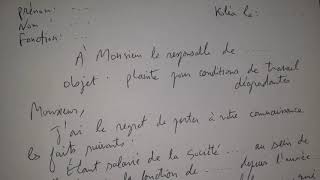 prénom: ...
Nom: ...
Fonction: ...
Kléa le: ...
À Monsieur le responsable de ...
objet: plainte pour conditions de travail
dégradantes.
Monsieur,
J'ai le regret de porter à votre connaissance
les faits suivants:
Étant salarié de la Société .... au sein de
la fonction de ...... depuis l'année